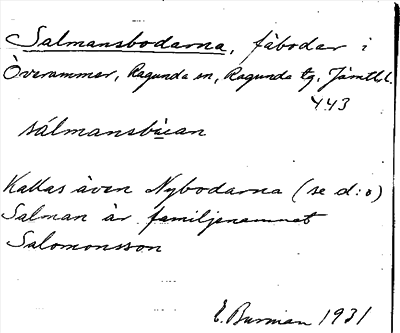 Salmansbodarna, fäbodar i
Överammer, Ragunda sn, Ragunda tg, Jämtl. l.
443
sálmansbùan
Kallas även Nybodarna (se d:o)
Salman är familjenamnet
Salomonsson
E. Burman 1931